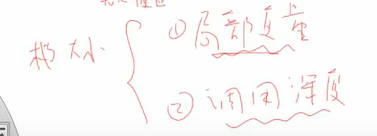 栈大小
①局部变量
②调用深度